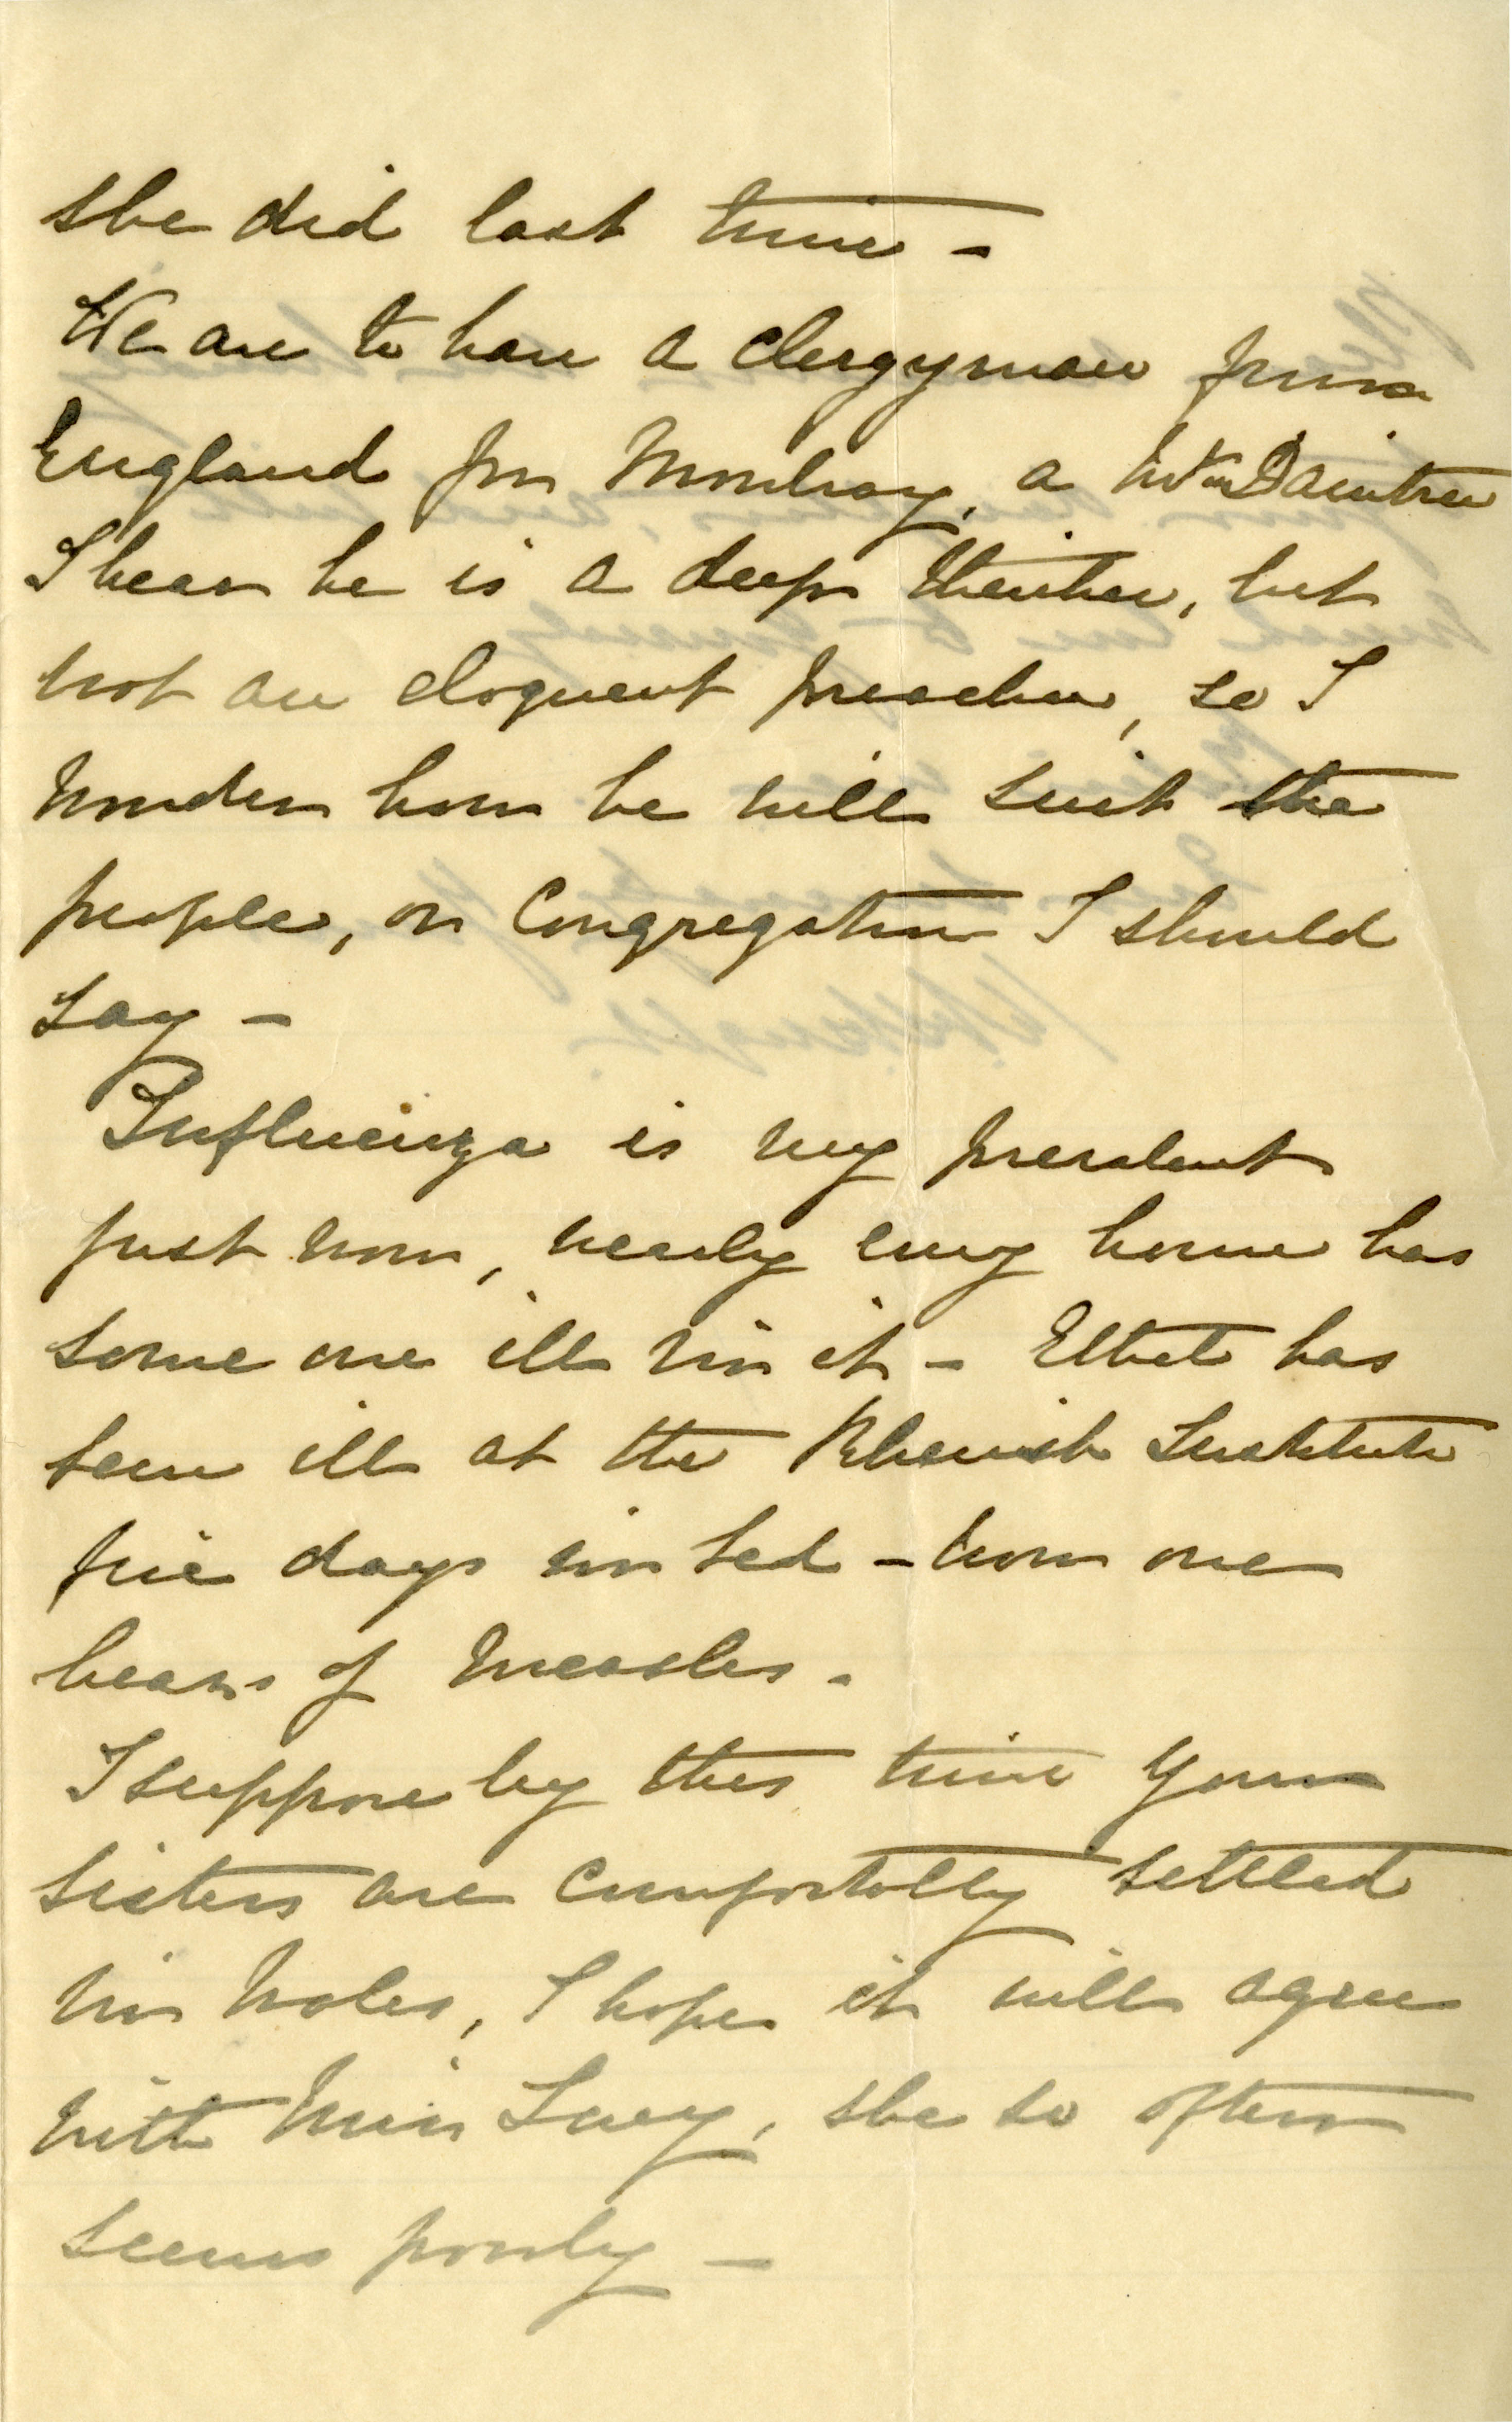 she did last time –
We are to have a clergyman from
England for Mowbray, a Daintree
I hear he is a deep thinker, but
not an eloquent preacher, so I
wonder how he will suit the
people, or Congregation I should
say –
Influenza is very prevalent
just now, nearly every house has
some one ill in it – Ethel has
been ill at the Rhenish Institute
five days in bed – now one
hears of Measles.
I suppose by this time your
sisters are comfortably settled
in Wales, I hope it will agree
with Miss Lucy, she so often
seems poorly –